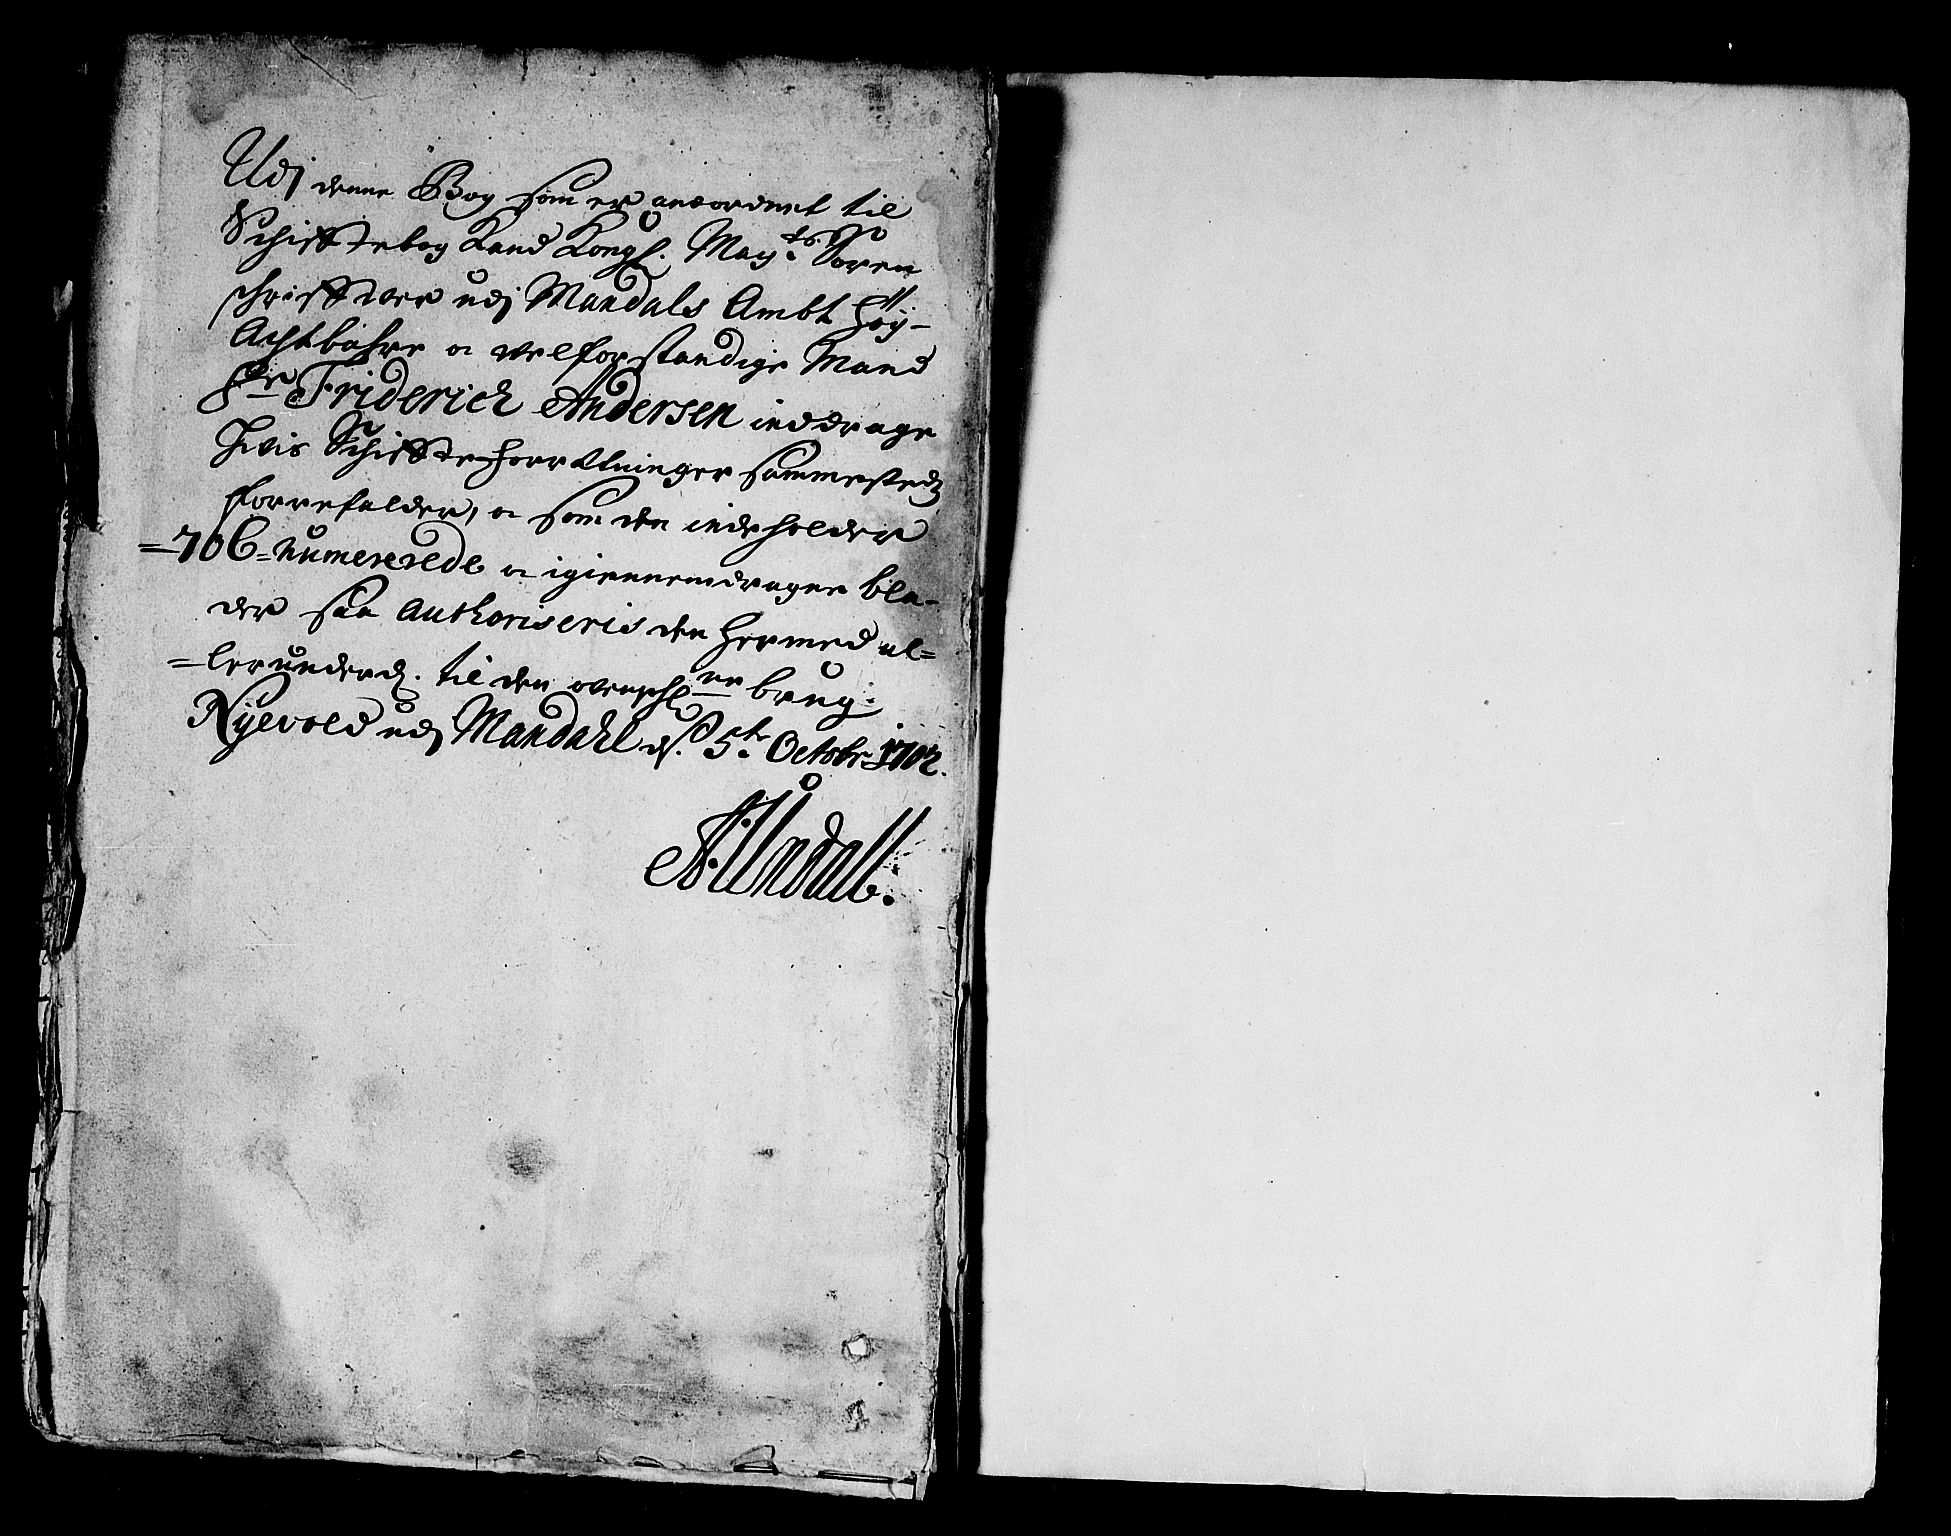 Udj denne Bog som er anordnet til
Schifftebog Kand Kongl. Mayts. Soren
schriffwer udj Mandals Ambt Höy-
Achtbahre oc velforstandige Mand
Hr Friderich Andersen inddrage
Hvis Schiffte forretninger sammestedz
forrefalder, oc som den indeholder
=706= numererede oc igiennemdragne bla-
der saa Authoriseris den hermed al-
=lerunderd. til den overschlne brug.
Nyevold udj Mandahl ds. 5te Octobr 1702.
A: Undall.